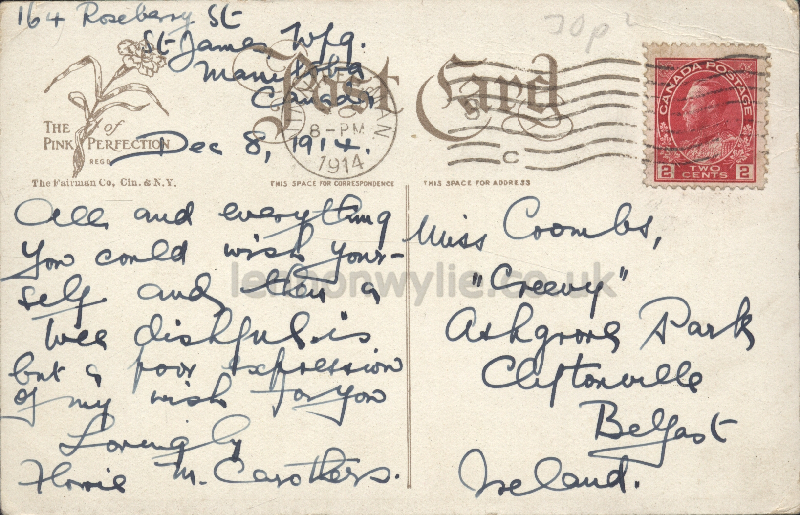 164 Roseberry St
St James Wpg.
Manitoba
Canada
Dec 8, 1914.
30p
Post Card
THE PINK of PERFECTION
REGD
The Fairman Co, Cin. & N.Y.
8-PM
1914
MAN.
C
CANADA POSTAGE
2 TWO CENTS 2
THIS SPACE FOR CORRESPONDENCE
THIS SPACE FOR ADDRESS
All and everything
you could wish your-
self and then a
wee dishful-is
but a poor expression
of my wish for you
Lovingly
Florrie M. Carothers.
Miss Coombs,
"Creevy"
Ashgrove Park
Cliftonville
Belfast
Ireland.
lennonwylie.co.uk